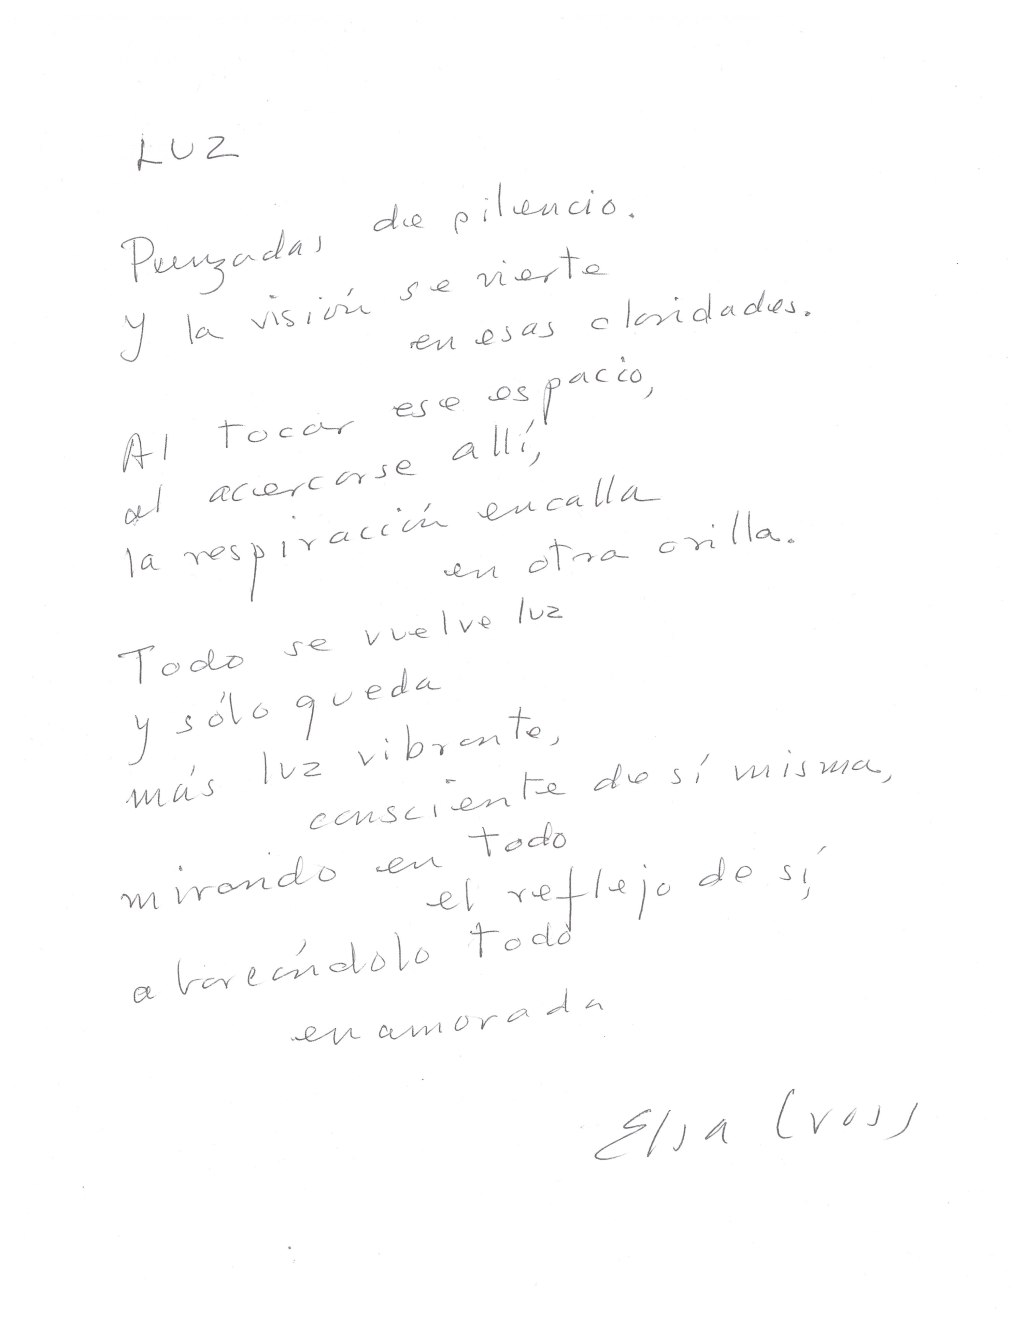 LUZ
Punzadas de silencio.
y la visión se vierte
en esas claridades.
Al tocar ese espacio,
al acercarse allí,
la respiración encalla
en otra orilla.
Todo se vuelve luz
y sólo queda
más luz vibrante,
consciente de sí misma,
mirando en todo
el reflejo de sí,
abarcándolo todo
enamorada
Elsa Cross